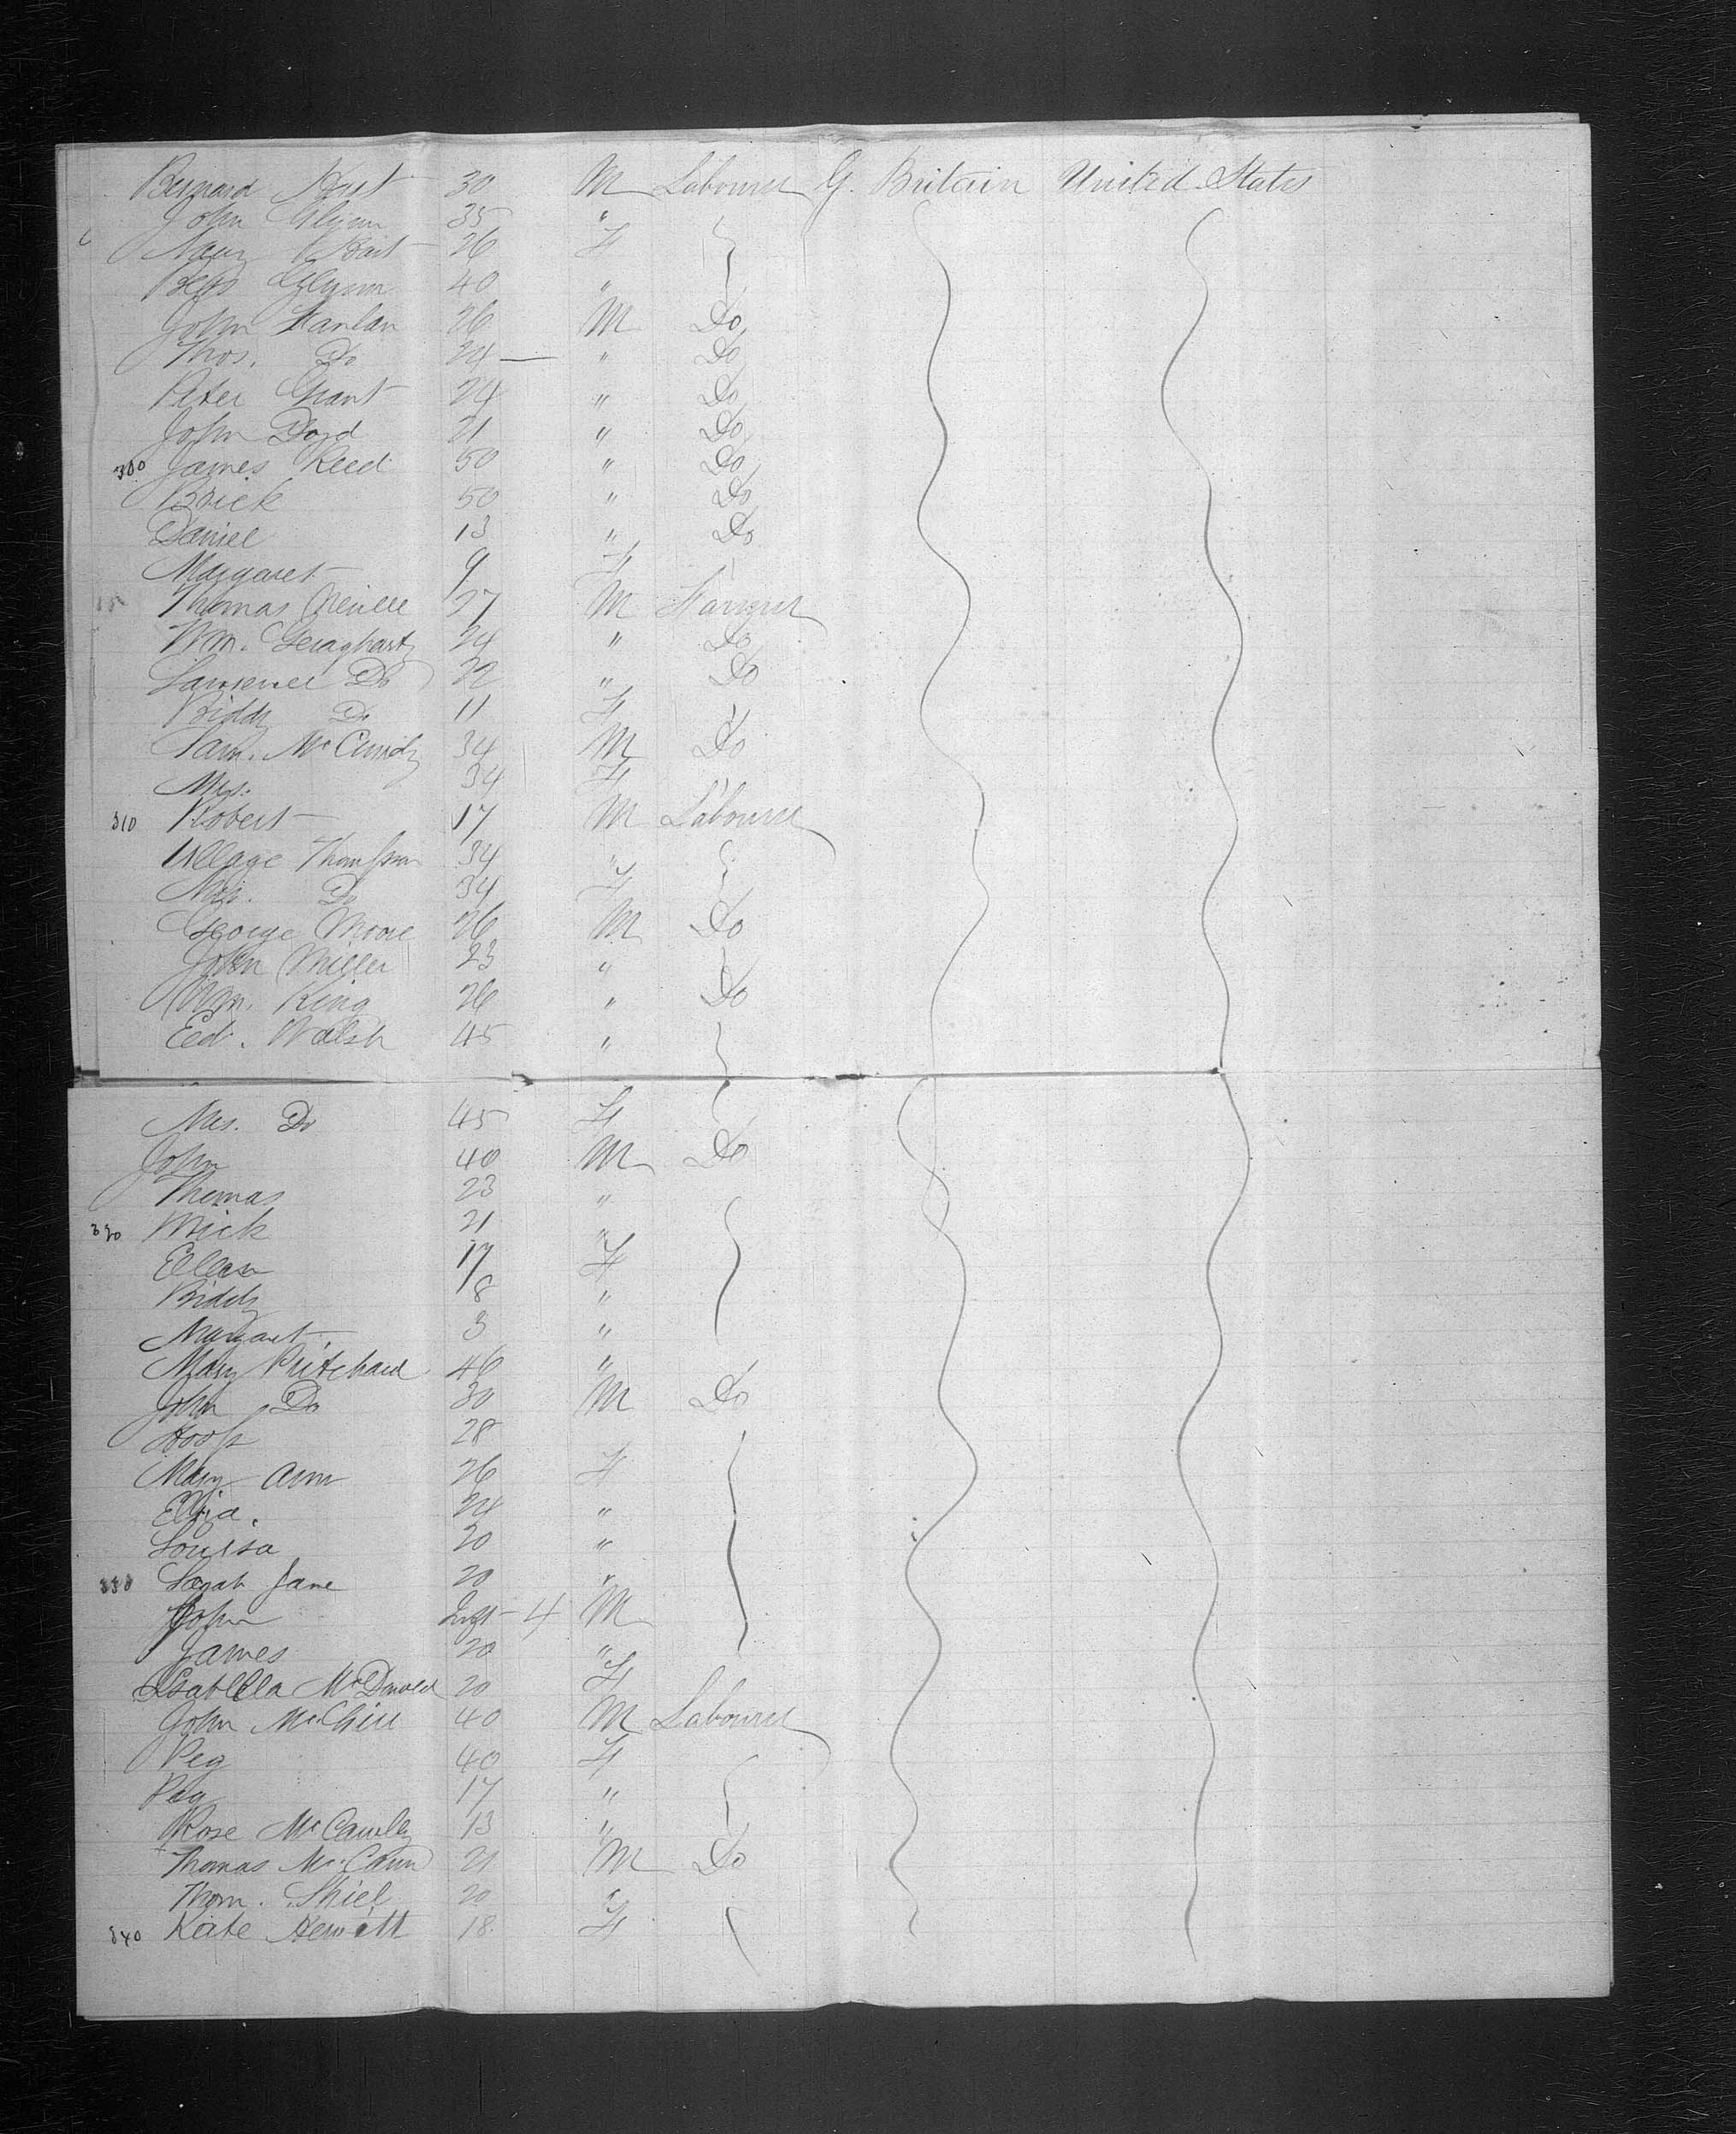 Bernard Hyst 30 M Labourer G. Britain United States
John Glynn 35 "
Mary 26 F
Bess Glynn 40 "
John Hanlan 26 M Do
Thos. Do 24 — " Do
Peter Grant 24 " Do
John Doyd 21 " Do
300 James Reed 50 " Do
Brick 50 " Do
Daniel 13 " Do
Margaret 9 F
Thomas Neville 27 M Farmer
Wm. Geragharty 24 " Do
Lawrence Do 22 " Do
Biddy Do 11 F
Sam. McCurdy 34 M Do
Mrs. 34 F
310 Robert 17 M Labourer
Thompson 34 "
Mrs. Do 34 F
George Moore 26 M Do
John Miller 23 "
Wm. King 26 " Do
Ed. Walsh 45 "
Mrs. Do 45 F
John 40 M Do
Thomas 23 "
320 Mick 21 "
Ellen 17 F
Biddy 8 "
Margaret 3 "
Mary Pritchard 46 "
John Do 30 M Do
28
Mary Ann 26 F
Eliza. 24 "
Louisa 20 "
330 Sarah Jane 20 "
John Inft - 4 M
James 20 "
Isabella McDonold 20 F
John 40 M Labourer
Peg 40 F
Peg 17 "
Rose McCawlly 13 "
Thomas McCann 21 M Do
Thom. Shiel 20 "
340 Kate Hewitt 18 F